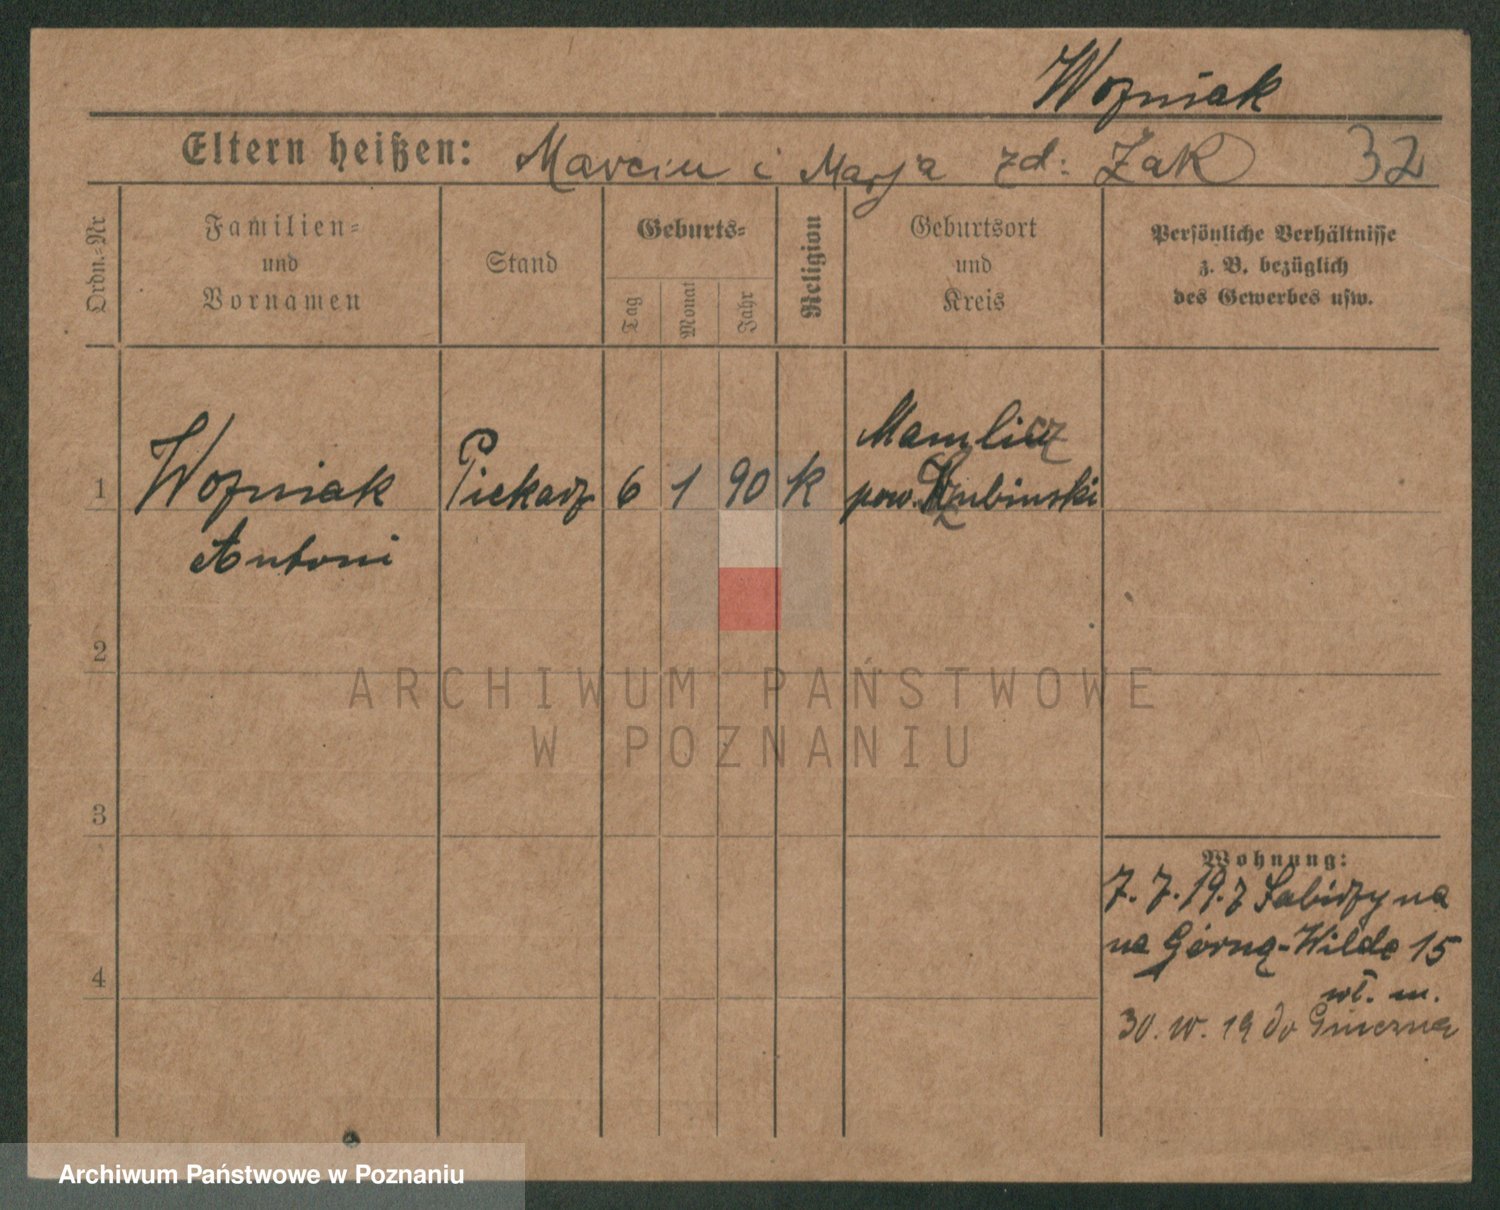 Wozniak
Eltern heißen: Marcin i Marja zd: Zak 32
Ordn.-Nr
Familien-
und
Vornamen
Stand
Geburts-
Tag
Monat
Jahr
Religion
Geburtsort
und
Kreis
Persönliche Verhältnisse
z. B. bezüglich
des Gewerbes usw.
1 Wozniak Piekarz 6 1 90 k Mamlicz
pow. Szubinski
Antoni
2
3
4
ARCHIWUM PAŃSTWOWE
W POZNANIU
Wohnung:
7. 7. 19. z Łabiszyna
na Górną-Wilde 15
wł. m.
30. IV. 19 do Gniezna
Archiwum Państwowe w Poznaniu